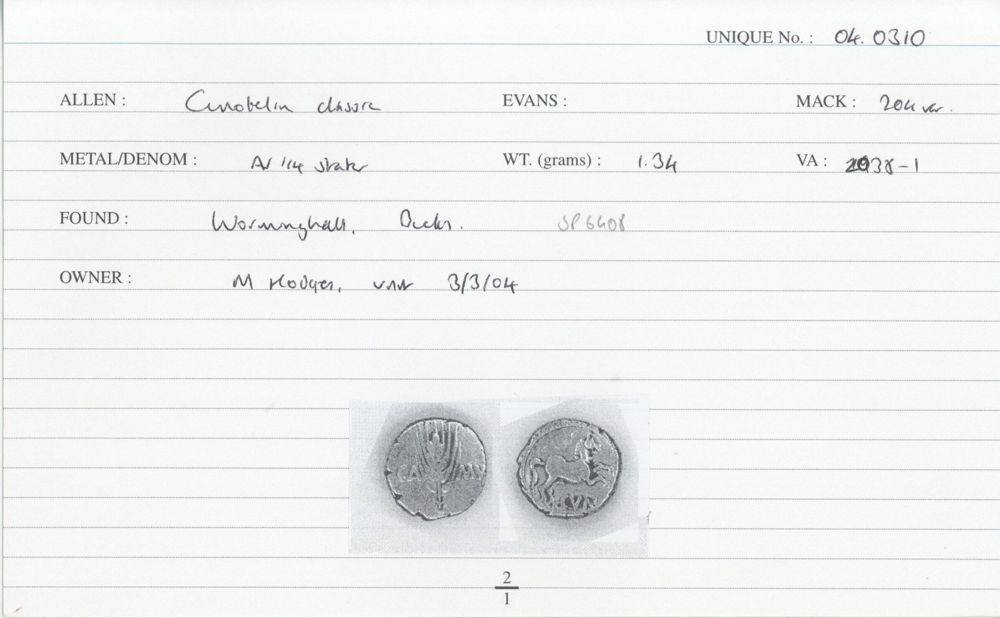 UNIQUE No. : 04.0310
ALLEN : Cunobelin classic EVANS : MACK : 204 var.
METAL/DENOM : AV 1/4 stater WT. (grams) : 1.34 VA : 2038-1
FOUND : Worminghall, Bucks. SP6408
OWNER : M Hodges, 3/3/04
CA MV
CVN
2
1